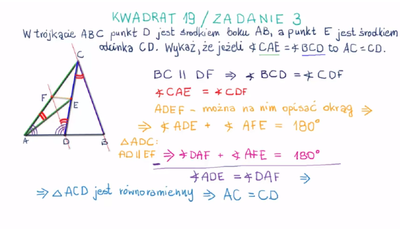 KWADRAT 19 / ZADANIE 3
W trójkącie ABC punkt D jest środkiem boku AB, a punkt E jest środkiem
odcinka CD. Wykaż, że jeżeli ∢CAE = ∢BCD to AC = CD.
C
BC || DF ⇒ ∢BCD = ∢CDF
∢CAE = ∢CDF
F
E
ADEF - można na nim opisać okrąg ⇒
⇒ ∢ADE + ∢AFE = 180°
A D B
△ADC:
AD||EF ⇒ ∢DAF + ∢AFE = 180°
∢ADE = ∢DAF ⇒
⇒ △ACD jest równoramienny ⇒ AC = CD